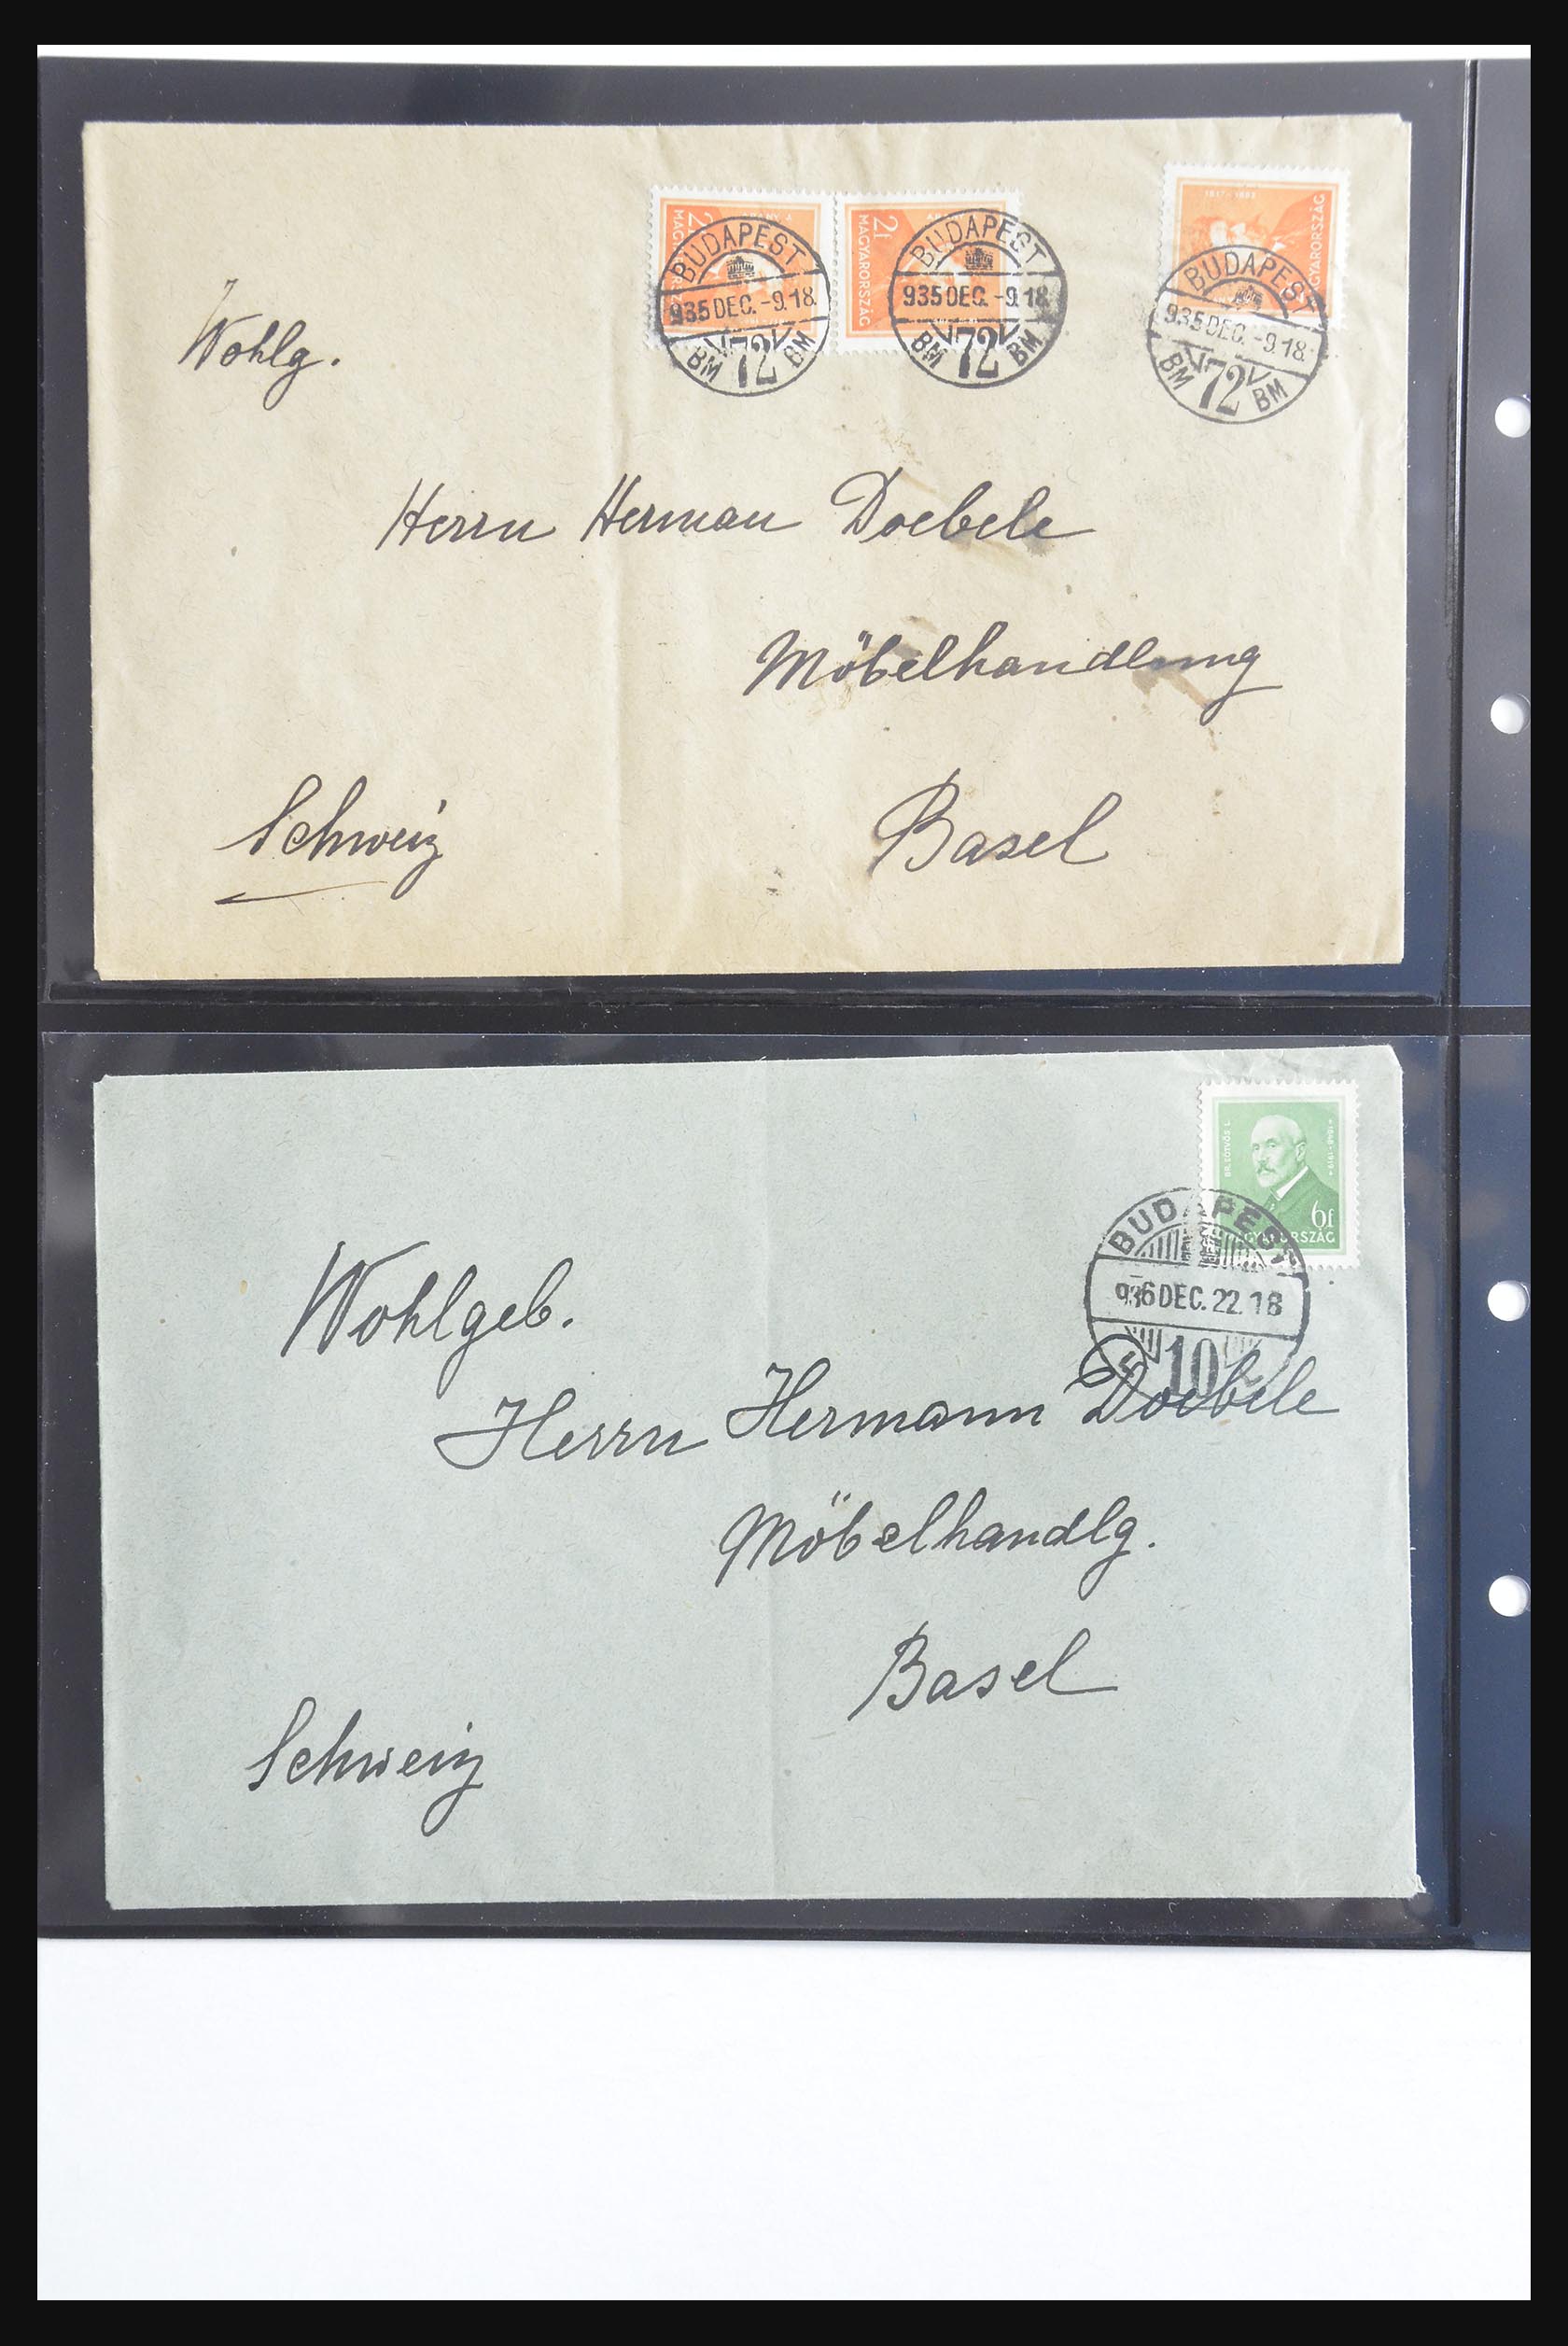 2f
MAGYARORSZÁG
2f
MAGYARORSZÁG
1817-1882
BUDAPEST
935 DEC. -9.18.
BM 72 BM
BUDAPEST
935 DEC. -9.18
BM 72 BM
BUDAPEST
935 DEC. -9.18.
BM 72 BM
Wohlg.
Herrn Herman Doebele
Möbelhandlung
Schweiz
Basel
BR. EÖTVÖS L.
1848-1919
6f
MAGYARORSZÁG
BUDAPEST
936 DEC. 22. 18
10
Wohlgeb.
Herrn Hermann Doebele
Möbelhandlg.
Basel
Schweiz